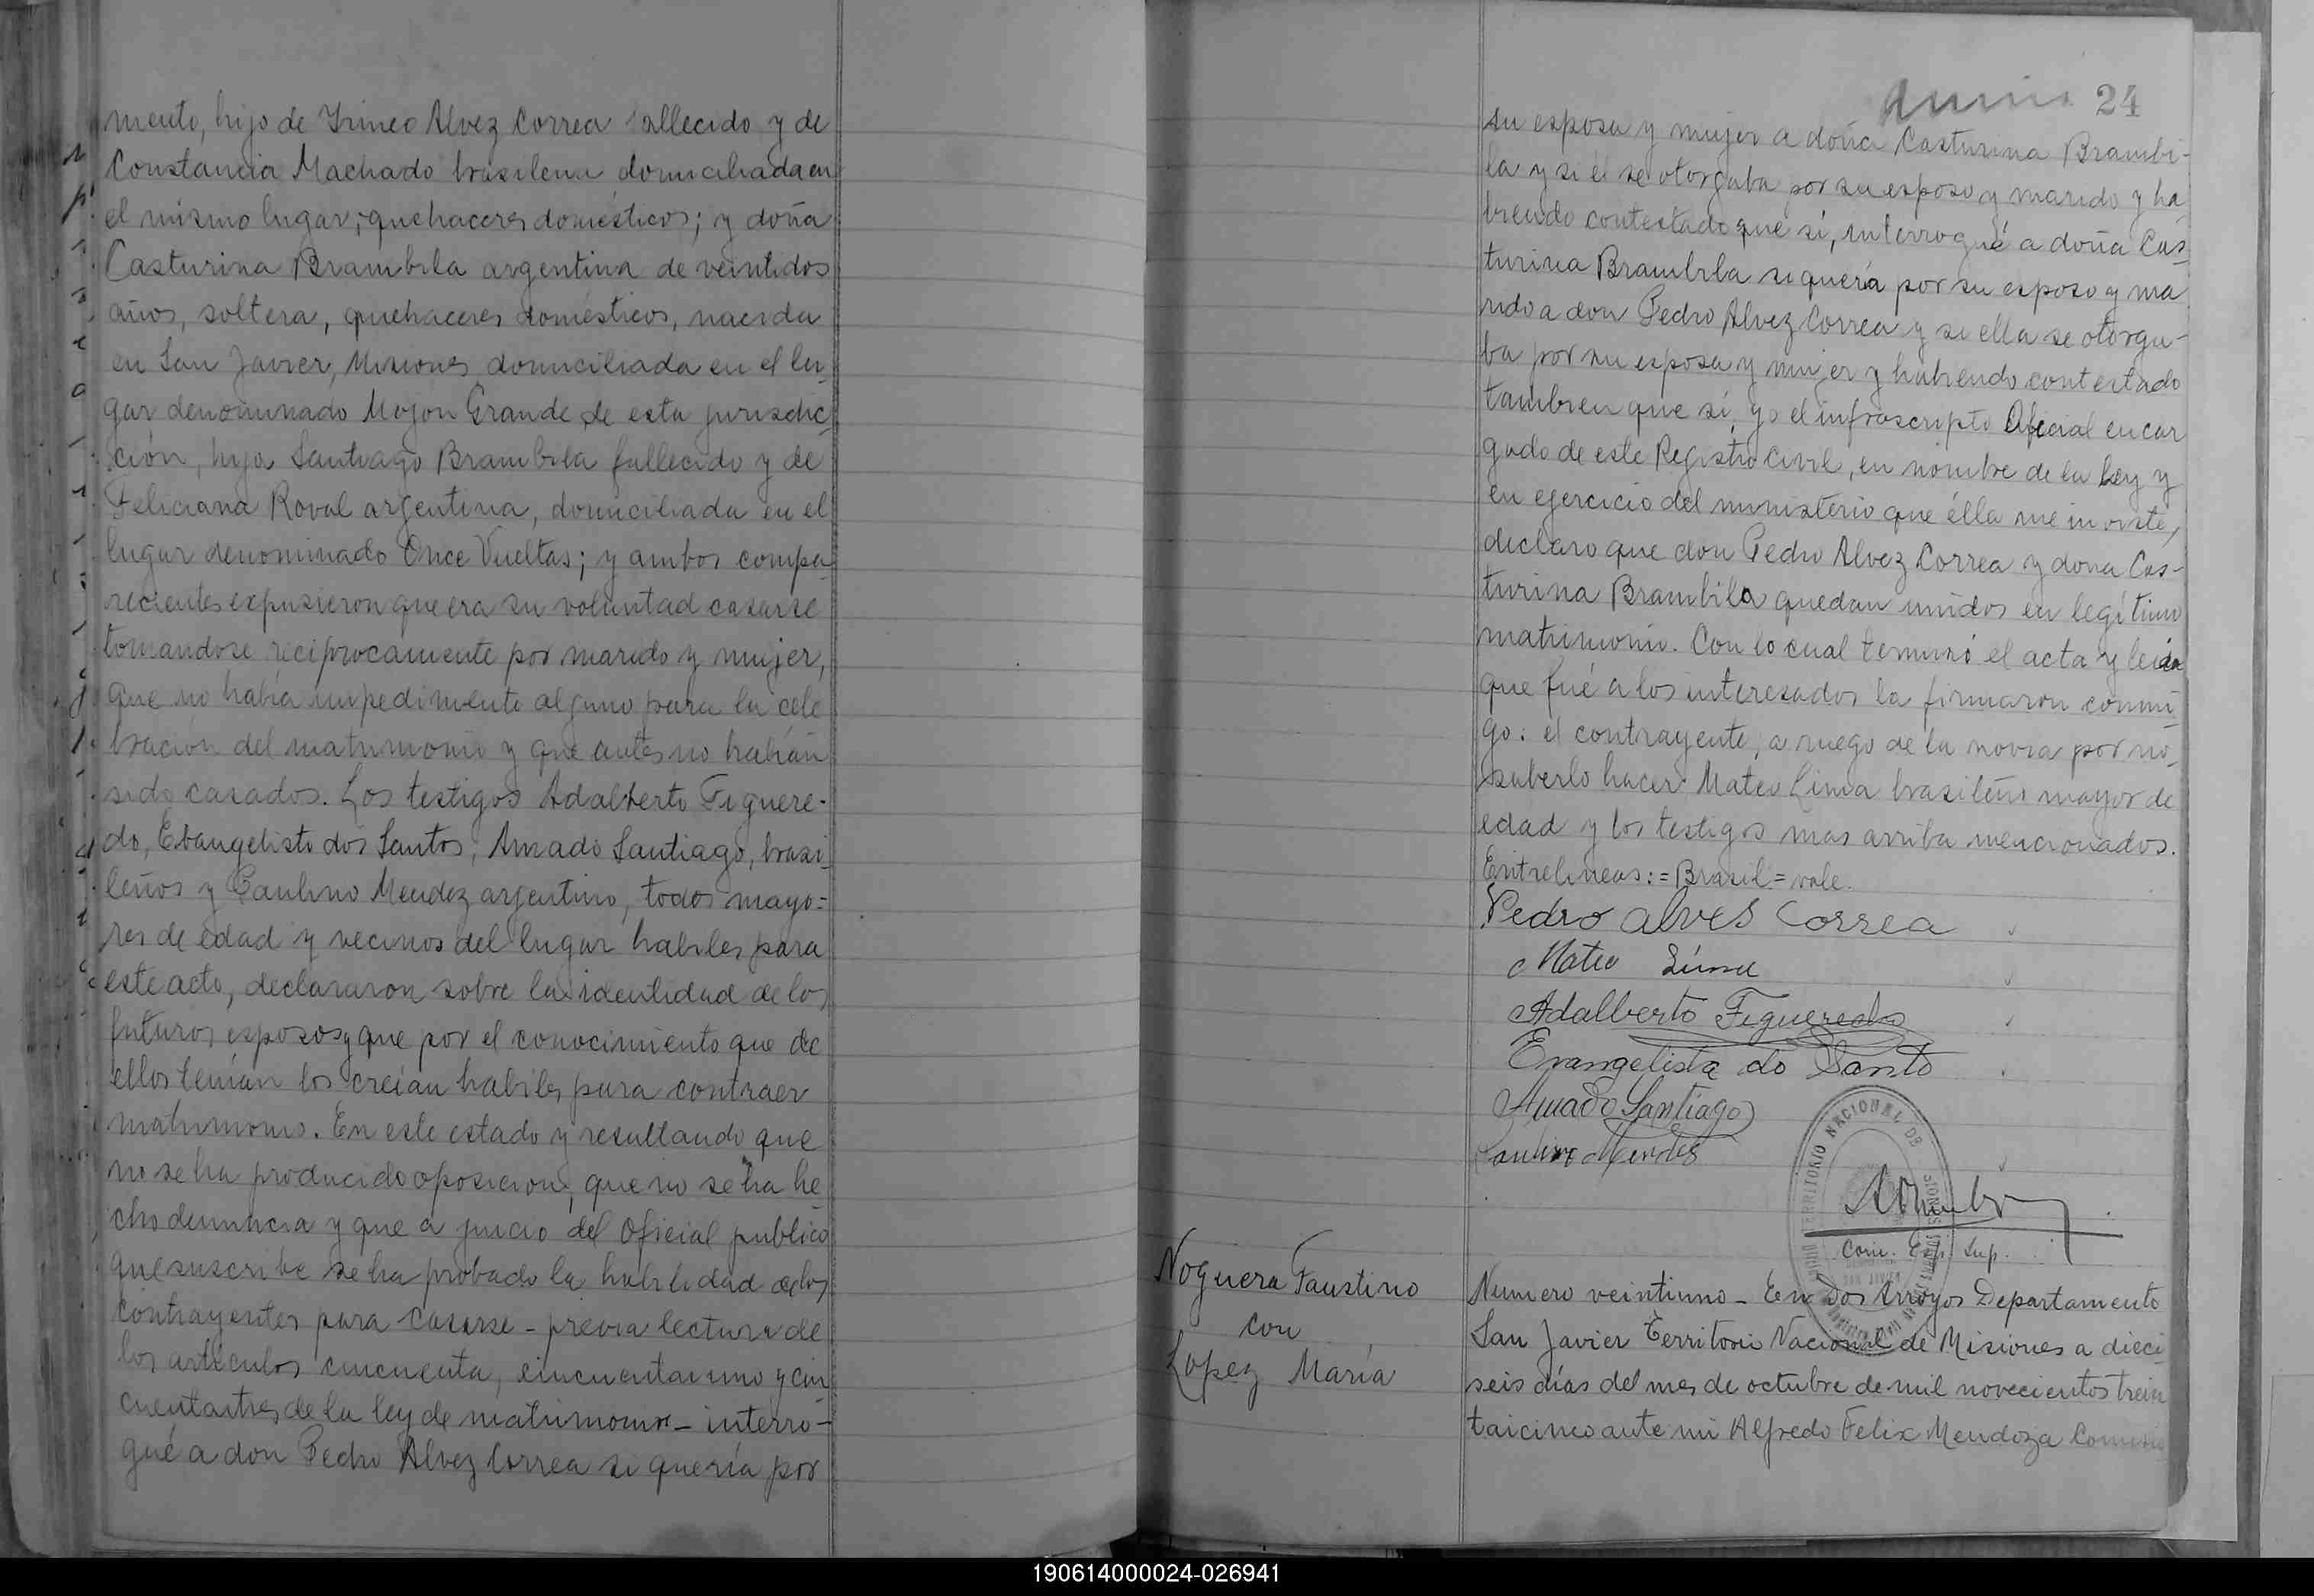 mento, hijo de Irineo Alvez Correa fallecido y de
Constancia Machado brasilena domiciliada en
el mismo lugar; quehaceres domésticos; y doña
Casturina Brambila argentina de veintidos
años, soltera, quehaceres domésticos, nacida
en San Javier, Misiones domiciliada en el lu-
gar denominado Mojon Grande de esta jurisdic-
ción, hija Santiago Brambila fallecido y de
Feliciana Roval argentina, domiciliada en el
lugar denominado Once Vueltas; y ambos compa-
recientes expusieron que era su voluntad casarse
tomandose reciprocamente por marido y mujer,
que no había impedimento alguno para la cele
bración del matrimonio y que antes no habían
sido casados. Los testigos Adalberto Figuere-
do, Evangelisto dos Santos, Amado Santiago, brasi
leños y Paulino Mendez argentino, todos mayo=
res de edad y vecinos del lugar habiles para
este acto, declararon sobre la identidad de los
futuros esposos y que por el conocimiento que de
ellos tenían los creían habiles para contraer
matrimonio. En este estado y resultando que
no se ha producido oposicion, que no se ha he
cho denuncia y que a juicio del Oficial publico
que suscribe se ha probado la habilidad de los
contrayentes para casarse - previa lectura de
los artículos cincuenta, cincuentaiuno y cin
cuentaitres de la ley de matrimonio - interro-
gué a don Pedro Alvez Correa si quería por
24
su esposa y mujer a doña Casturina Brambi-
la y si él se otorgaba por su esposo y marido y ha
biendo contestado que sí, interrogué a doña Cas
turina Brambila si quería por su esposo y ma
rido a don Pedro Alvez Correa y si ella se otorga-
ba por su esposa y mujer y habiendo contestado
tambien que sí, yo el infrascripto Oficial encar
gado de este Registro Civil, en nombre de la Ley y
en ejercicio del ministerio que élla me inviste,
declaro que don Pedro Alvez Correa y dona Cas-
turina Brambila quedan unidos en legítimo
matrimonio. Con lo cual terminó el acta y leida
que fué a los interesados la firmaron conmi-
go: el contrayente, a ruego de la novia por no
saberlo hacer Mateo Lima brasileño mayor de
edad y los testigos mas arriba mencionados.
Entrelineas: = Brasil = vale.
Pedro alves Correa
Mateo Lima
Adalberto Figueredo
Evangelista do Santo
Amado Santiago
Paulino Mendes
TERRITORIO NACIONAL DE MISIONES
Com. Esp. Sup.
Noguera Faustino
con
Lopez María
Numero veintiuno - En Dos Arroyos Departamento
San Javier Territorio Nacional de Misiones a dieci
seis días del mes de octubre de mil novecientos trein
taicinco ante mi Alfredo Felix Mendoza Comisa
190614000024-026941